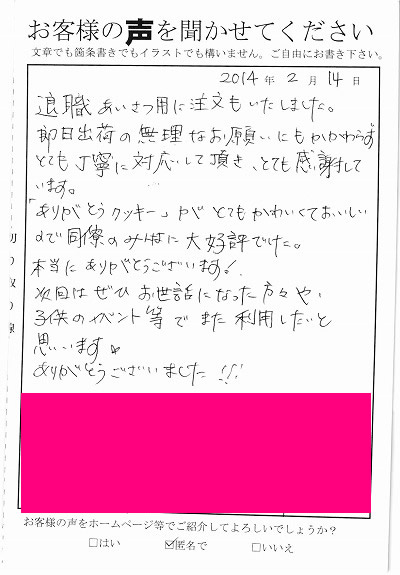 お客様の声を聞かせてください
文章でも箇条書きでもイラストでも構いません。ご自由にお書き下さい。
2014年 2月 14日
退職あいさつ用に注文もいたしました。
即日出荷の無理なお願いにもかかわらず
とても丁寧に対応して頂き、とても感謝して
います。
「ありがとうクッキー」が とてもかわいくておいしい
ので同僚のみんなに大好評でした。
本当にありがとうございます!
次回はぜひお世話になった方々や、
子供のイベント等でまた利用したいと
思います♥
ありがとうございました!!
お客様の声をホームページ等でご紹介してよろしいでしょうか?
□はい ☑匿名で □いいえ